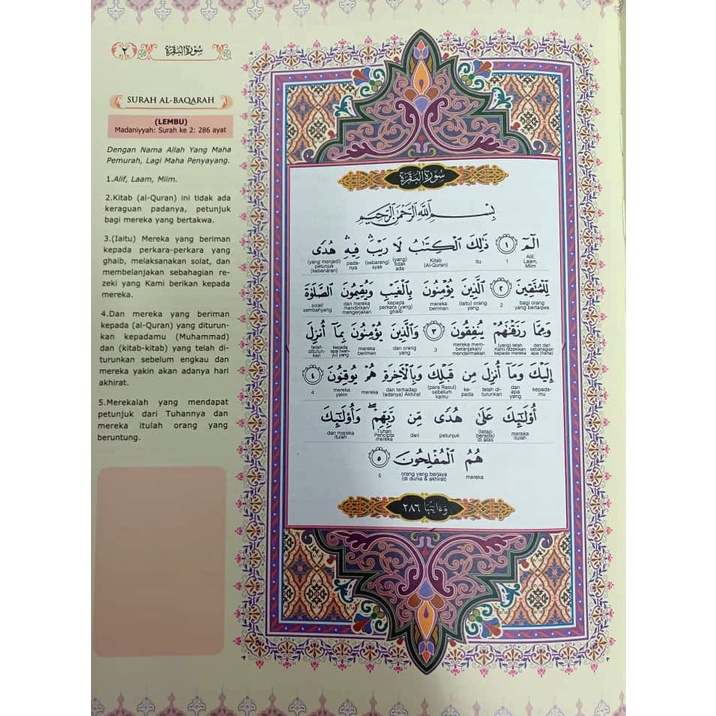 ٢
سُورَةُ البَقَرَة
SURAH AL-BAQARAH
(LEMBU)
Madaniyyah: Surah ke 2: 286 ayat
Dengan Nama Allah Yang Maha
Pemurah, Lagi Maha Penyayang.
1.Alif, Laam, Miim.
2.Kitab (al-Quran) ini tidak ada
keraguan padanya, petunjuk
bagi mereka yang bertakwa.
3.(Iaitu) Mereka yang beriman
kepada perkara-perkara yang
ghaib, melaksanakan solat, dan
membelanjakan sebahagian re-
zeki yang Kami berikan kepada
mereka.
4.Dan mereka yang beriman
kepada (al-Quran) yang diturun-
kan kepadamu (Muhammad)
dan (kitab-kitab) yang telah di-
turunkan sebelum engkau dan
mereka yakin akan adanya hari
akhirat.
5.Merekalah yang mendapat
petunjuk dari Tuhannya dan
mereka itulah orang yang
beruntung.
سُورَةُ البَقَرَة
بِسْمِ اللَّهِ الرَّحْمَٰنِ الرَّحِيمِ
الٓمٓ ١ ذَٰلِكَ الْكِتَابُ لَا رَيْبَ فِيهِ هُدًى
Alif, Laam, Miim 1 itu Kitab (Al-Quran) (yang) tidak ada (sebarang) syak pada-nya (yang menjadi) petunjuk (kebenaran)
لِّلْمُتَّقِينَ ٢ الَّذِينَ يُؤْمِنُونَ بِالْغَيْبِ وَيُقِيمُونَ الصَّلَوٰةَ
bagi orang yang bertaqwa 2 (iaitu) orang yang mereka beriman kepada perkara (yang) ghaib dan mereka mendirikan/ mengerjakan solat/ sembahyang
وَمِمَّا رَزَقْنَٰهُمْ يُنفِقُونَ ٣ وَالَّذِينَ يُؤْمِنُونَ بِمَآ أُنزِلَ
dan dari sebahagian apa (harta) (yang) telah kami rizekikan kepada mereka mereka mem-belanjakan/ mendermakan 3 dan orang yang mereka beriman kepada apa (wahyu) yang telah diturun-kan
إِلَيْكَ وَمَآ أُنزِلَ مِن قَبْلِكَ وَبِالْأَخِرَةِ هُمْ يُوقِنُونَ ٤
kepada-mu dan apa yang telah di-turunkan ke-pada (para Rasul) sebelum kamu dan terhadap (adanya) Akhirat mereka mereka yakin 4
أُوْلَٰٓئِكَ عَلَىٰ هُدًى مِّن رَّبِّهِمْ ۖ وَأُوْلَٰٓئِكَ
mereka itulah (tetap berada) di atas petunjuk dari Tuhan Pencipta mereka dan mereka itulah
هُمُ الْمُفْلِحُونَ ٥
mereka orang yang berjaya (di dunia & akhirat) 5
وَءَايَاتُهَا ٢٨٦